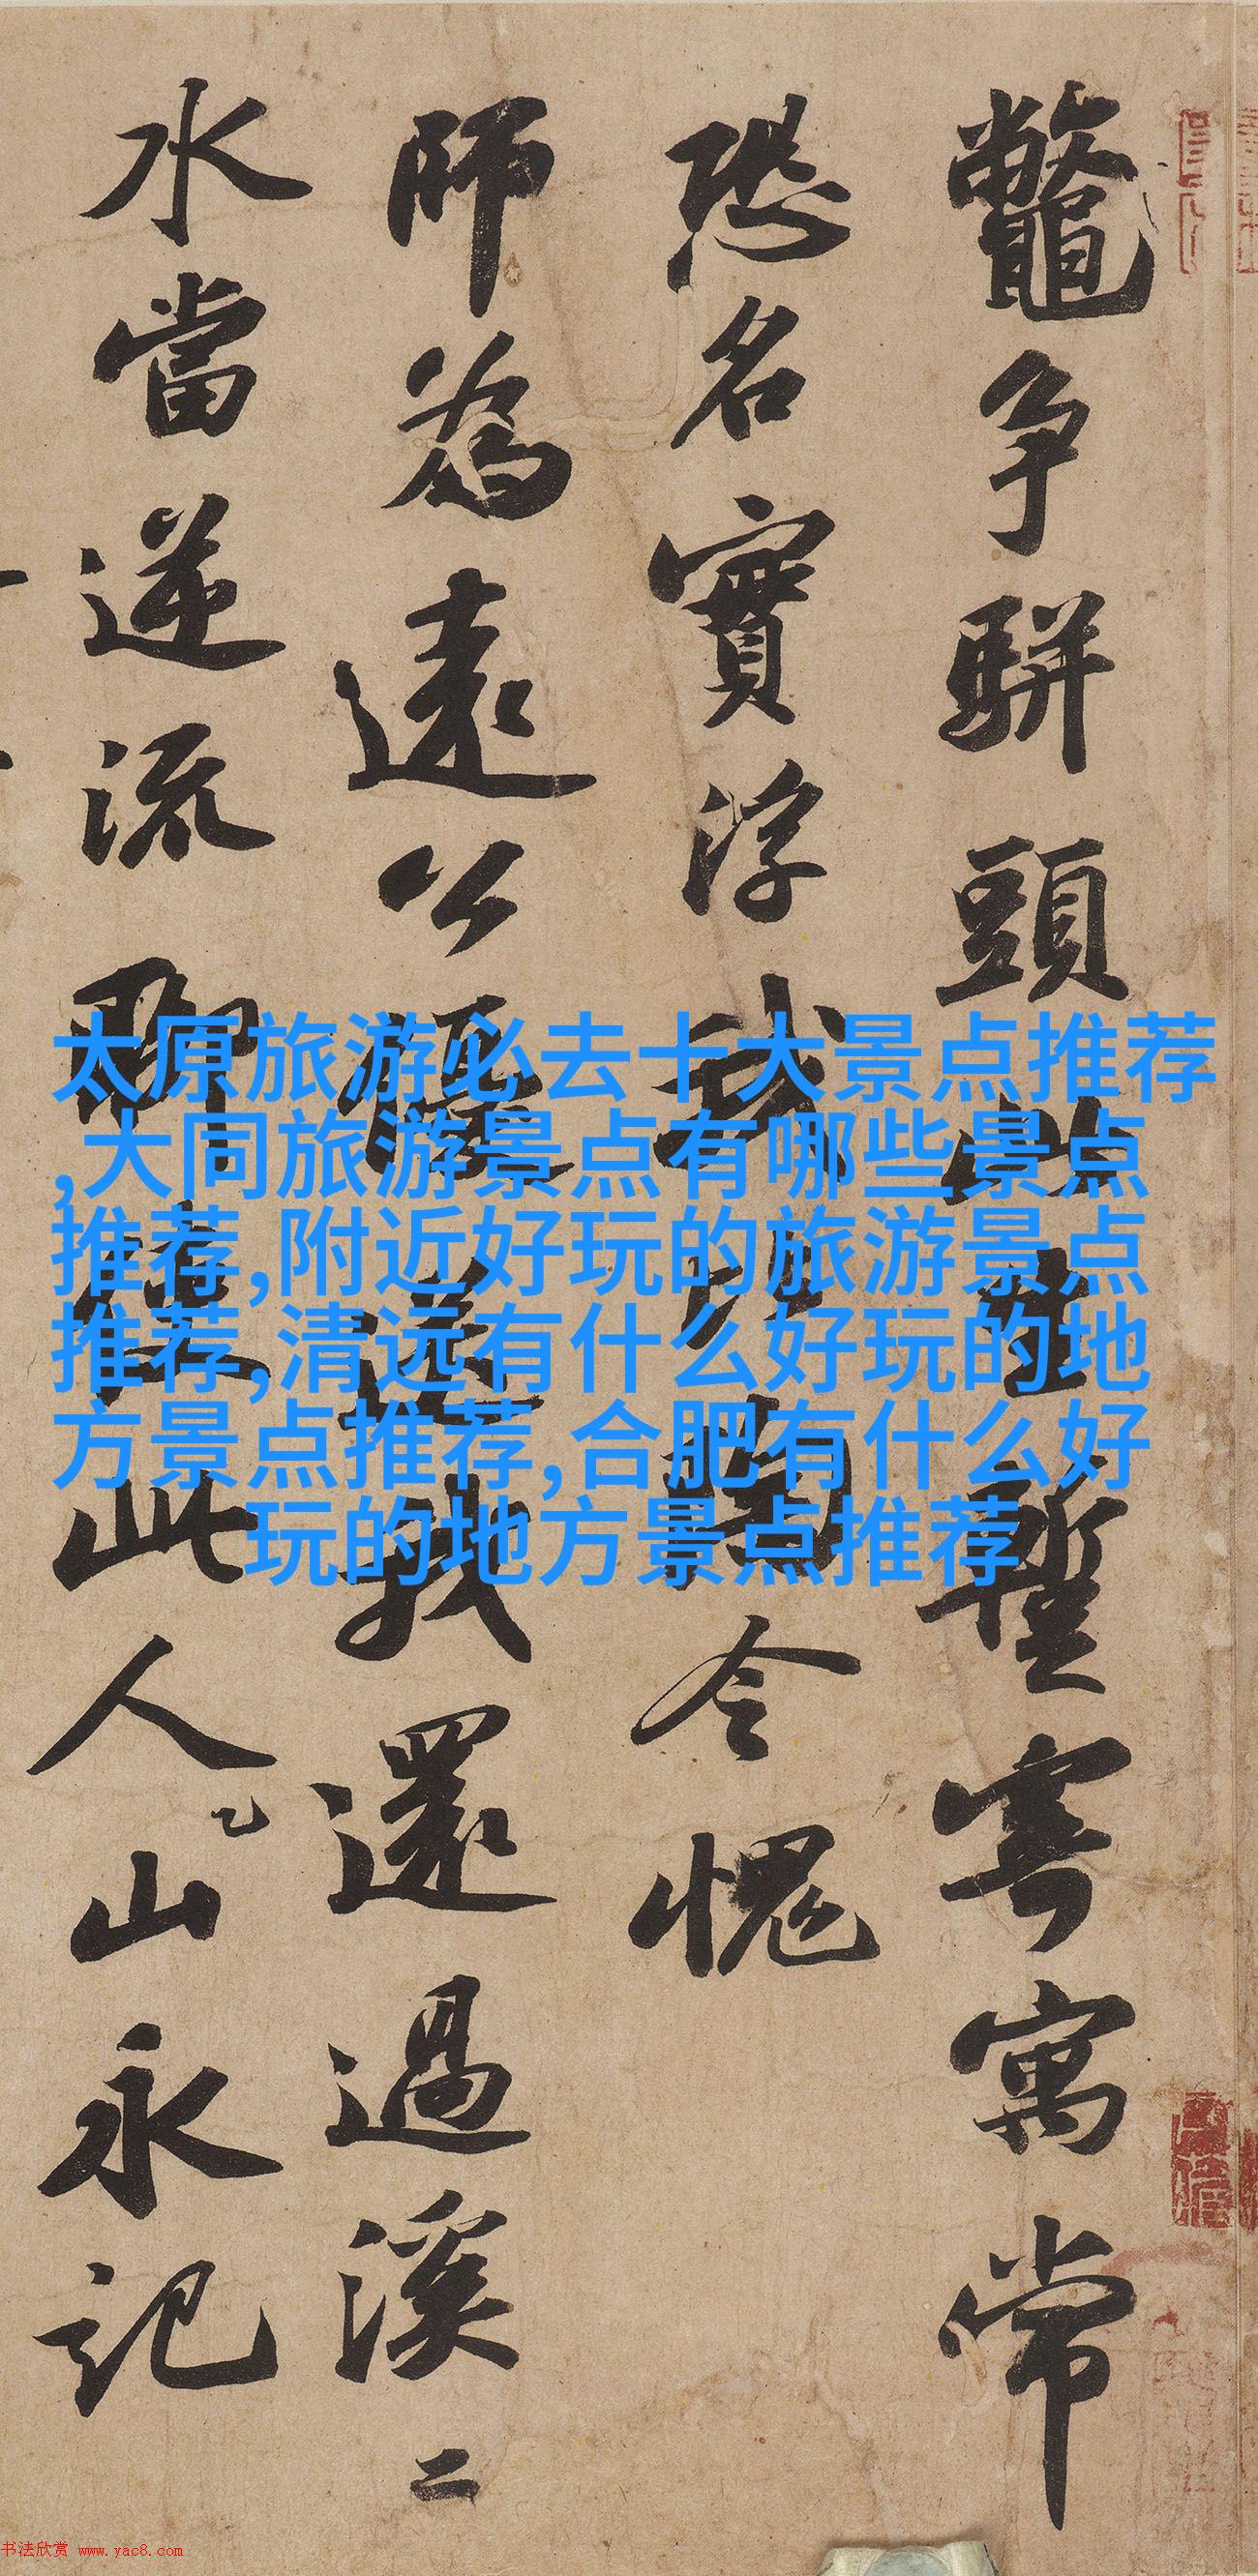 鼈争駢頭此生暫寄寓常
恐名實浮我比陶令愧
師為遠公優送我還過溪二
水當逆流聊使此人山永記
太原旅游必去十大景点推荐
,大同旅游景点有哪些景点
推荐,附近好玩的旅游景点
推荐,清远有什么好玩的地
方景点推荐,合肥有什么好
玩的地方景点推荐
书法欣赏 www.yac8.com